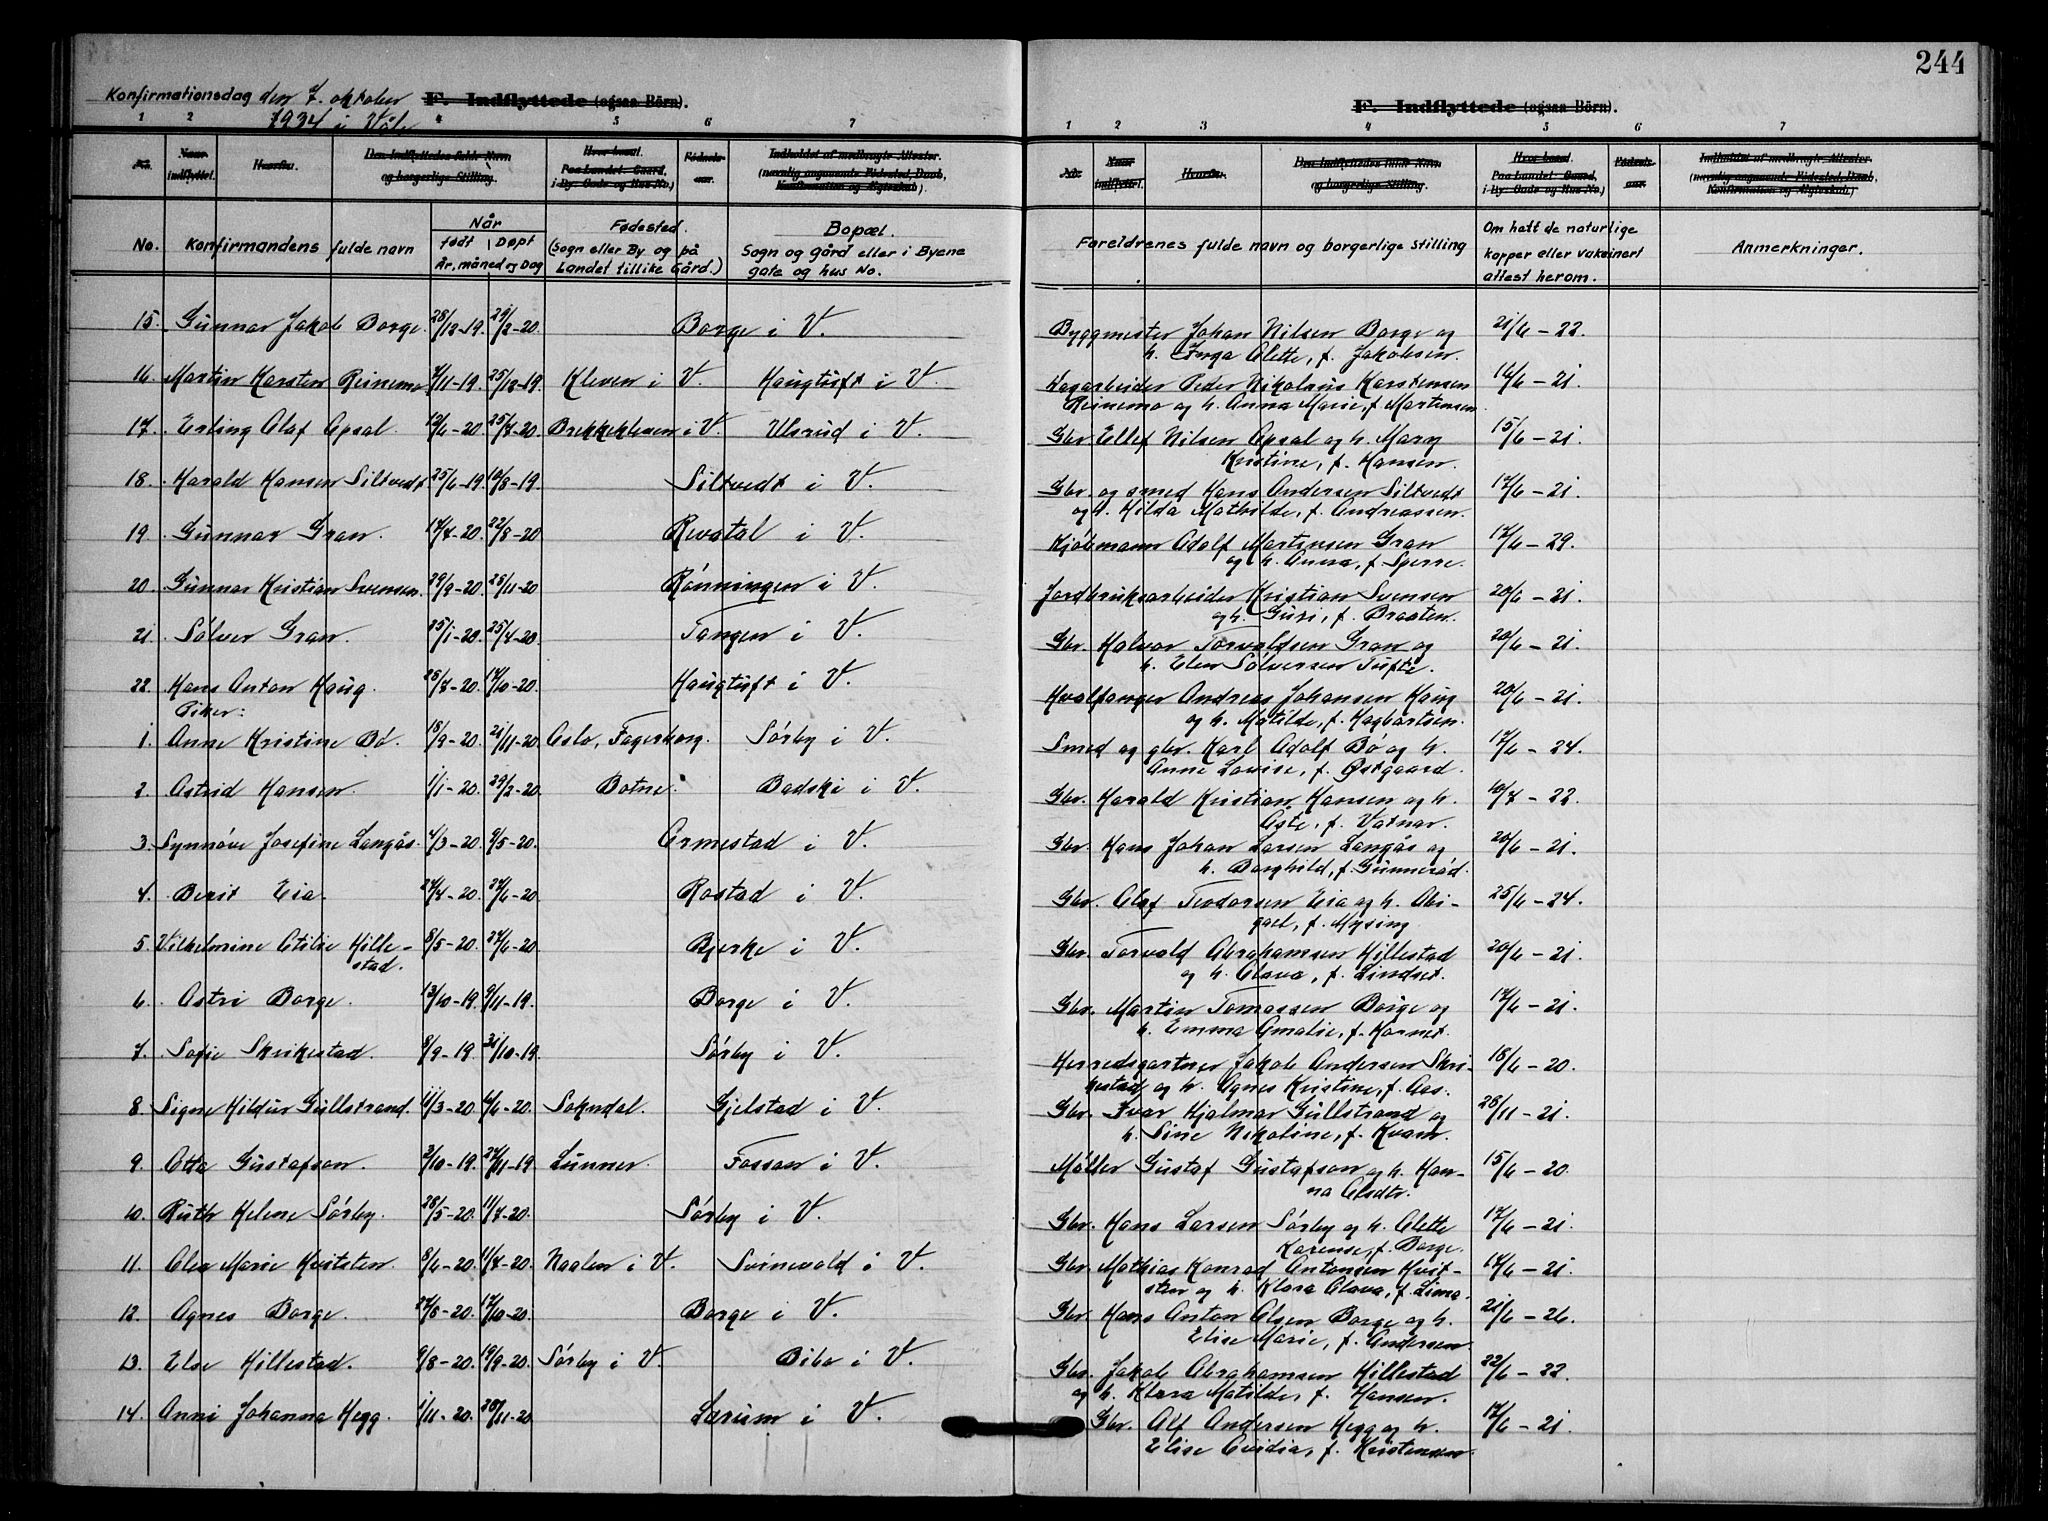 244
Konfirmationsdag den 7. oktober F. Indflyttede (ogsaa Börn).
1934 i Våle
F. Indflyttede (ogsaa Börn).
1 2 4 5 6 7
1 2 3 4 5 6 7
No. Naar indflyttet. Hvorfra. Den Indflyttedes fulde Navn og borgerlige Stilling. Hvor bosat. Paa Landet: Gaard, i By: Gade og Hus No.) Fødselsaar. Indholdet af medbragte Attester. (navnlig angaaende Vidnesbed, Daab, Konfirmation og Ægteskab).
No. Konfirmandens fulde navn Når født | Døpt År, måned og Dag Fødested. (Sogn eller By og på Landet tillike Gård.) Bopæl. Sogn og gård eller i Byene gate og hus No.
Foreldrenes fulde navn og borgerlige stilling Om hatt de naturlige kopper eller vaksinert attest herom. Anmerkninger.
15. Gunnar Jakob Borge. 28/12-19. 29/2-20. Borge i V. Byggmester Johan Nilsen Borge og 21/6-22.
h. Inga Alette, f. Jakobsen.
16. Martin Karsten Reinemo 4/11-19 25/12-19. Kleven i V. Haugtuft i V. Hagarbeider Peder Nikolaus Karstensen 16/6-21.
Reinemo og h. Anna Marie, f. Martinsen.
17. Erling Olaf Apsal. 12/6-20 25/7-20. Brekkekleven i V. Ulsrud i V. Gbr. Ellef Nilsen Apsal og h. Mary 15/6-21.
Kristine, f. Hansen.
18. Harald Hansen Siltvedt 25/6-19. 10/8-19. Siltvedt i V. Gbr. og smed Hans Andersen Siltvedt 17/6-21.
og h. Hilda Mathilde, f. Andreassen.
19. Gunnar Gran. 17/7-20. 22/8-20 Revatal i V. Kjøbmann Adolf Martinsen Gran 17/6-29.
og h. Anna, f. Sperre.
20. Gunnar Kristian Svensen. 29/9-20. 25/11-20 Rønningen i V. Jordbruksarbeider Kristian Svensen 20/6-21.
og h. Guri, f. Braaten.
21. Sølver Gran. 25/1-20. 25/4-20. Tangen i V. Gbr. Halvor Torvaldsen Gran og 20/6-21.
h. Elen Sølversen Tufte.
22. Hans Anton Haug. 25/7-20. 17/10-20. Haugtuft i V. Hvalfanger Andreas Johansen Haug 20/6-21.
og h. Matilde, f. Hagbartsen.
Piker:
1. Anne Kristine Bö. 18/9-20. 21/11-20 Oslo, Fagerborg. Sørby i V. Smed og gbr. Karl Adolf Bö og h. 17/6-24.
Anne Lovise, f. Østgaard.
2. Astrid Hansen. 1/1-20. 29/2-20. Botne. Badski i V. Gbr. Harald Kristian Hansen og h. 10/7-22.
Agte, f. Vatnar.
3. Synnøve Josefine Langås. 4/3-20. 9/5-20. Ormestad i V. Gbr. Hans Johan Larsen Langås og 20/6-21.
h. Borghild, f. Gunnerød.
4. Berit Eia. 24/4-20. 27/6-20 Rostad i V. Gbr. Olaf Teodorsen Eia og h. Abi- 25/6-24.
gael, f. Mysing
5. Vilhelmine Otilie Hille- 8/5-20. 27/6-20 Bjerke i V. Gbr. Torvald Abrahamsen Hillestad 20/6-21.
stad. og h. Olava, f. Lindset.
6. Astri Borge. 13/10-19. 9/11-19. Borge i V. Gbr. Martin Tomassen Borge og 17/6-21.
h. Emma Amalie, f. Hornet.
7. Sofie Skrikestad. 8/9-19. 31/10-19 Sørby i V. Herredsgartner Jakob Andersen Skri- 18/6-20.
kestad og h. Agnes Kristine, f. Aas.
8. Signe Hildur Gullstrand. 11/3-20 6/6-20. Sokndal. Gjelstad i V. Gbr. Ivar Hjalmar Gullstrand og 28/11-21.
h. Sine Nikoline, f. Kvam.
9. Otta Gustafson. 2/10-19. 27/11-19. Lunner. Fossan i V. Møller Gustaf Gustafson og h. Han- 15/6-20.
na Olsdtr.
10. Ruth Helene Sørby. 28/5-20. 11/7-20. Sørby i V. Gbr. Hans Larsen Sørby og h. Alette 17/6-21.
Karense, f. Borge.
11. Olea Marie Kvitsten. 8/6-20. 11/7-20. Naalen i V. Svinevold i V. Gbr. Mathias Konrad Antonsen Kvit- 17/6-21.
sten og h. Klara Olava, f. Liena.
12. Agnes Borge. 27/8-20. 17/10-20. Borge i V. Gbr. Hans Anton Olsen Borge og h. 21/6-26.
Elise Marie, f. Andersen.
13. Else Hillestad. 9/8-20. 19/9-20. Sørby i V. Bibo i V. Gbr. Jakob Abrahamsen Hillestad 22/6-22.
og h. Klara Matilde, f. Hansen.
14. Anni Johanna Hegg. 1/11-20. 28/11-20 Lørum i V. Gbr. Alf Andersen Hegg og h. 17/6-21.
Elise Ovidia, f. Kristensen.